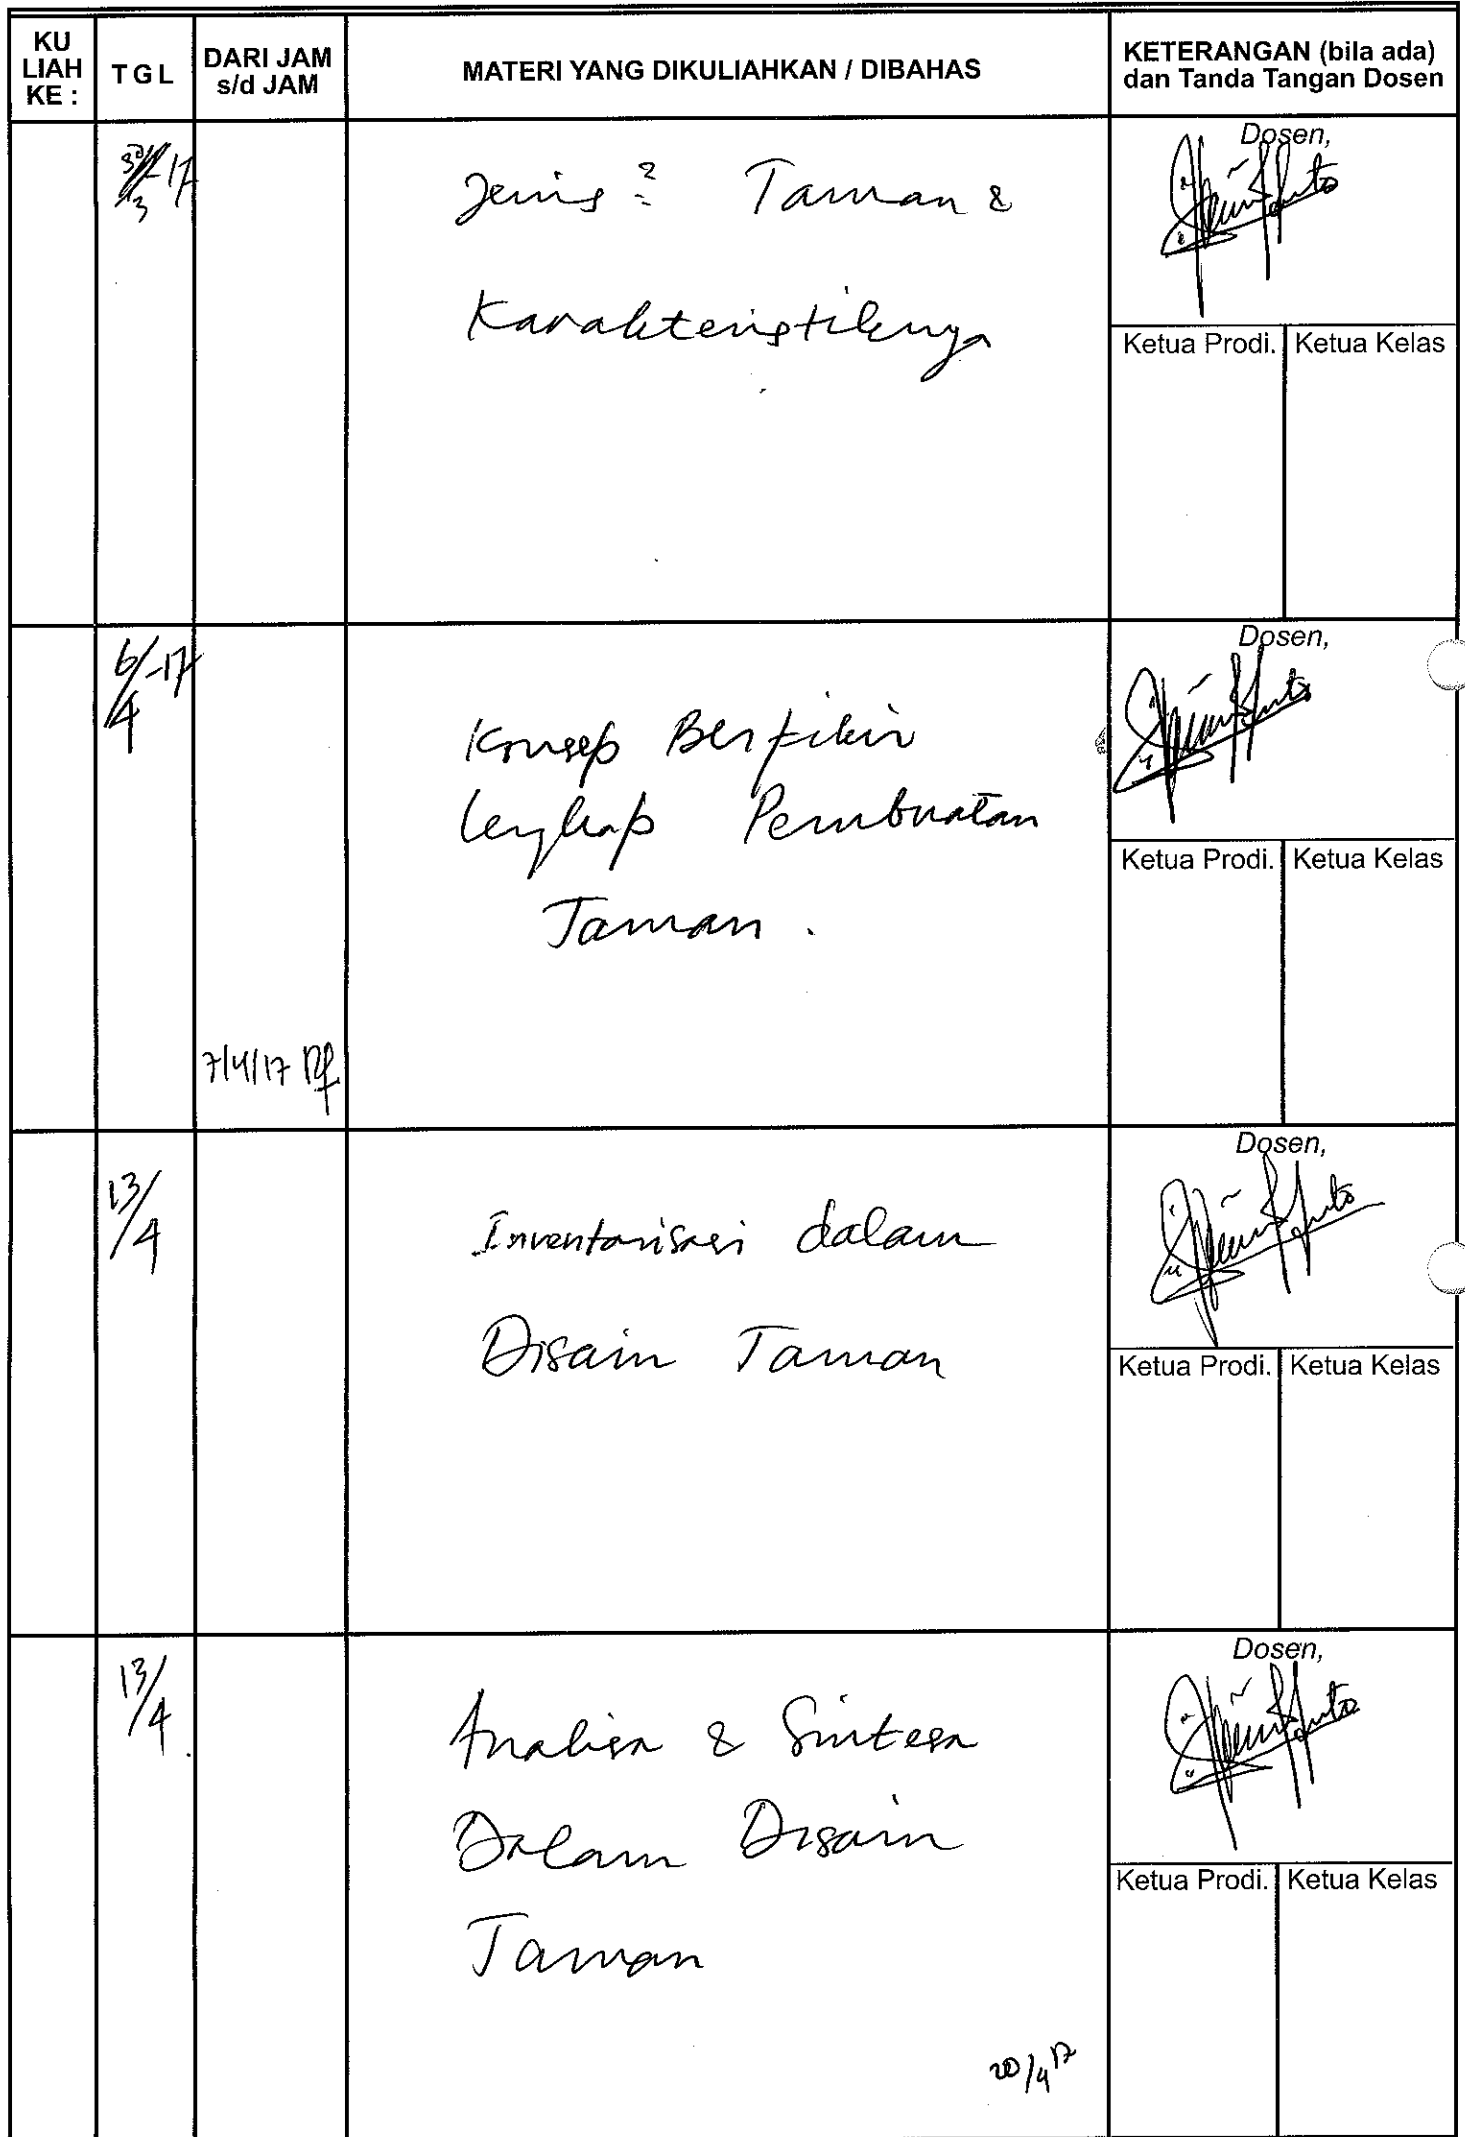 KU LIAH KE :
TGL
DARI JAM s/d JAM
MATERI YANG DIKULIAHKAN / DIBAHAS
KETERANGAN (bila ada) dan Tanda Tangan Dosen
30/3-17
Jenis2 Taman &
Karakteristiknya
Dosen,
Ketua Prodi. Ketua Kelas
6/4-17
Konsep Berfikir
lengkap Pembuatan
Taman.
7/4/17
Dosen,
Ketua Prodi. Ketua Kelas
13/4
Inventarisasi dalam
Disain Taman
Dosen,
Ketua Prodi. Ketua Kelas
13/4
Analisa & Sintesa
Dalam Disain
Taman
20/4 17
Dosen,
Ketua Prodi. Ketua Kelas